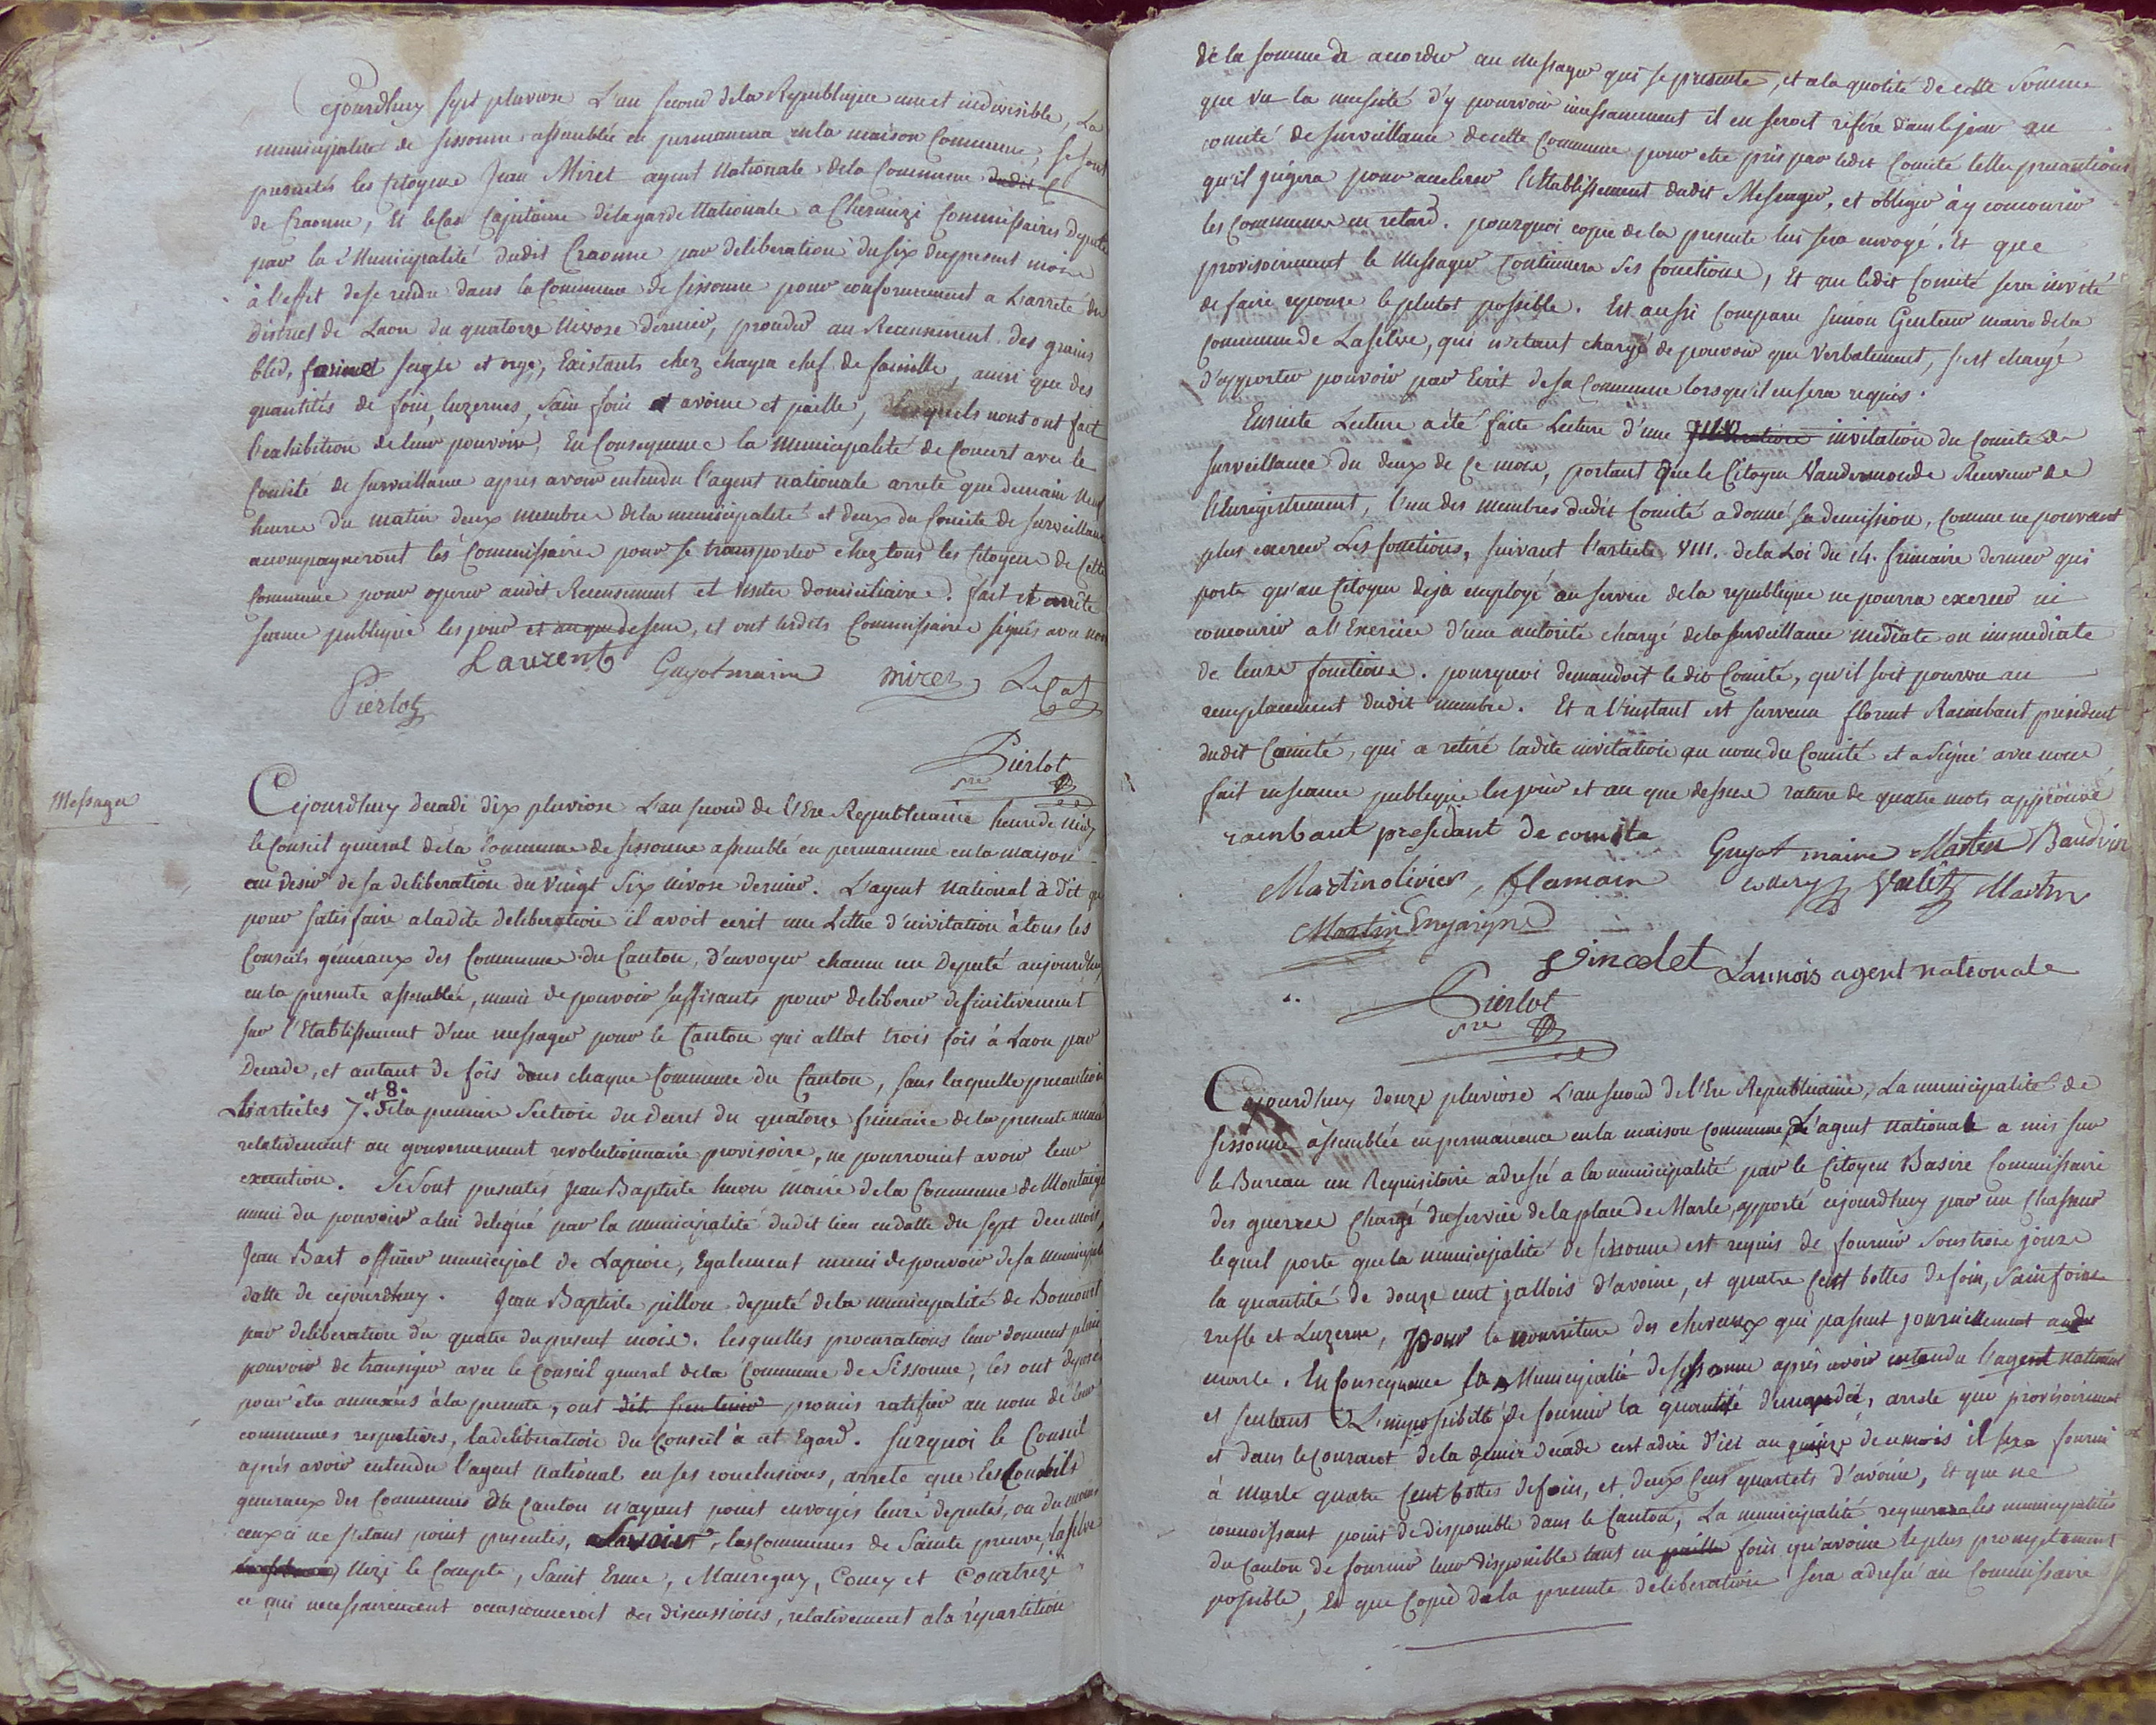 Cejourdhuy sept pluviose L'an second de la Republique une et indivisible, La
municipalité de sissonne assemblée en permanence en la maison Commune, se sont
presentés les Citoyens Jean Miret agent Nationale de la Commune dudit C
de Craonne, Et le Cat Capitaine de la garde Nationale a Chermizi Commissaires deputés
par la Municipalité dudit Craonne par deliberation du six du present mois
à l'effet de se rendre dans la Commune de sissonne pour conformement a L'arreté du
District de Laon du quatorze Nivose dernier, proceder au Recensement des grains
bled, farine seigle et orge, Existants chez chaque chef de famille, ainsi que des
quantités de foin, luzernes, sain foin et avoine et paille, lesquels nous ont fait
l'exhibition de leur pouvoir, En Consequence la municipalité de Concert avec le
Comité de surveillance après avoir entendu l'agent nationale arrete que demain neuf
heures du matin deux membres de la municipalité et deux du Comité de surveillance
accompagneront les Commissaires pour se transporter chez tous les Citoyens de Cette
Commune pour operer audit Recensement et visites domiciliaires. fait et arrêté
seance publique les jour et an que dessus, et ont lesdits Commissaires signés avec nous
Laurent Guyot maire mirez LeCat
Pierlot
Pierlot
sre
Messager
Cejourdhuy decadi dix pluviose L'an second de l'Ere Republicaine heure de midy
le Conseil general de la Commune de sissonne assemblé en permanence en la maison
au desir de sa deliberation du vingt six nivose dernier. L'agent national a dit que
pour satisfaire a ladite deliberation il avoit ecrit une Lettre d'invitation à tous les
Conseils généraux des Communes du Canton, d'envoyer chacun un Deputé aujourd'huy
en la presente assemblée, muni de pouvoir suffisants pour deliberer definitivement
sur l'Etablissement d'un messager pour le Canton qui allat trois fois à Laon par
Decade, et autant de fois dans chaque Commune du Canton, sans laquelle precaution
Les articles 7. et 8. de la premiere Section du Decret du quatorze frimaire de la presente année
relativement au gouvernement revolutionnaire provisoire, ne pourroient avoir leur
execution. Se sont presentés Jean Baptiste huon Maire de la Commune de Montaigu
muni du pouvoir a lui delegué par la municipalité dudit lieu en datte du sept de ce mois,
Jean Bart officier municipal de Lapion, Egalement muni de pouvoir de sa municipalité
datte de cejourdhuy. Jean Baptiste pillon deputé de la municipalité de Boncourt
par deliberation du quatre du present mois. lesquelles procurations leur donnent plein
pouvoir de transiger avec le Conseil general de la Commune de Sissonne, les ont deposés
pour être annexées à la presente, ont dit s'en tenir promis ratifier au nom de leur
communes respectives, la deliberation du Conseil à cet Egard. Surquoi le Conseil
après avoir entendu l'agent National en ses conclusions, arrete que les Conseils
generaux des Communes du Canton n'ayant point envoyés leurs deputés, ou du moins
ceux ci ne s'etant point presentés, Savoir, les Communes de Sainte preuve, Laselve
Nizi le Compte, Saint Erme, Mauregny, Coucy et Courtrizi
ce qui necessairement occasionneroit des discussions, relativement a la repartition
de la somme de accorder au Messager qui se presente, et a la quotité de cette Somme
que vu la necessité d'y pourvoir incessamment il en seroit référé dans le jour au
comité de surveillance de cette Commune pour etre pris par ledit Comité telles precautions
qu'il jugera pour accelerer l'Etablissement dudit Messager, et obliger à y concourir
les Communes en retard. pourquoi copie de la presente lui sera envoyé. Et que
provisoirement le Messager Continuera Ses fonctions, Et que ledit Comité sera invité
de faire reponse le plutot possible. Est aussi Comparu Simon Genteur maire de la
commune de Laselve, qui n'etant chargé de pouvoir que Verbalement, s'est chargé
d'apporter pouvoir par Ecrit de sa Commune lorsqu'il en sera requis.
Ensuite Lecture a été faite Lecture d'une deliberation invitation du Comité de
surveillance du deux de Ce mois, portant que le Citoyen Vandermonde Receveur de
l'Enregistrement, l'un des membres dudit Comité a donné sa demission, comme ne pouvant
plus exercer Les fonctions, suivant l'article VIII. de la Loi du 14. frimaire dernier qui
porte qu'au Citoyen deja employé au service de la republique ne pourra exercer ni
concourir a l'Exercice d'une autorité chargé de la surveillance mediate ou immediate
de leurs fonctions. pourquoi demandoit le dit Comité, qu'il soit pourvu au
remplacement dudit membre. Et a l'instant est survenu florent Raimbaut president
dudit Comité, qui a retiré ladite invitation au nom du Comité et a Signé avec nous
fait en seance publique les jour et an que dessus rature de quatre mots approuvé
rainbaut presidant de comite Guyot maire Martin Baudvin
Martin olivier, flamain Valet Martin
Martin Engaigne
Vincelet Lannois agent nationale
Pierlot
sre
Cejourdhuy douze pluviose L'an second de l'Ere Republicaine, La municipalité de
sissonne assemblée en permanence en la maison Commune, L'agent National a mis sur
le Bureau un Requisitoire adressé a la municipalité par le Citoyen Basire Commissaire
des guerres Chargé du service de la place de Marle, apporté cejourdhuy par un Chasseur
lequel porte que la municipalité de sissonne est requis de fournir Sous trois jours
la quantité de douze cent jallois d'avoine, et quatre Cent bottes de foin, Sainfoin
trefle et Luzerne, pour la nourriture des chevaux qui passent journellement audit
marle. En Consequence la Municipalité de sissonne après avoir entendu l'agent national
et sentant L'impossibilité de fournir la quantité demandée, arrete que provisoirement
et dans le Courant de la demie decade cest a dire d'ici au quinze de ce mois il sera fourni
à Marle quatre Cent bottes de foin, et deux Cens quartels d'avoine, Et que ne
connoissant point de disponible dans le Canton, La municipalité requerera les municipalités
du Canton de fournir leur disponible tant en paille foin qu'avoine le plus promptement
possible, Et que Copie de la presente deliberation sera adressé au Commissaire